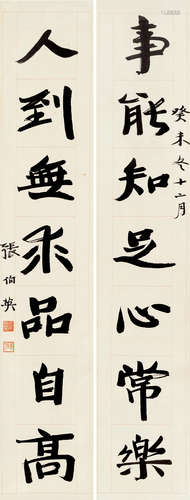 事能知足心常樂
癸未冬十二月
人到無求品自高
張伯英